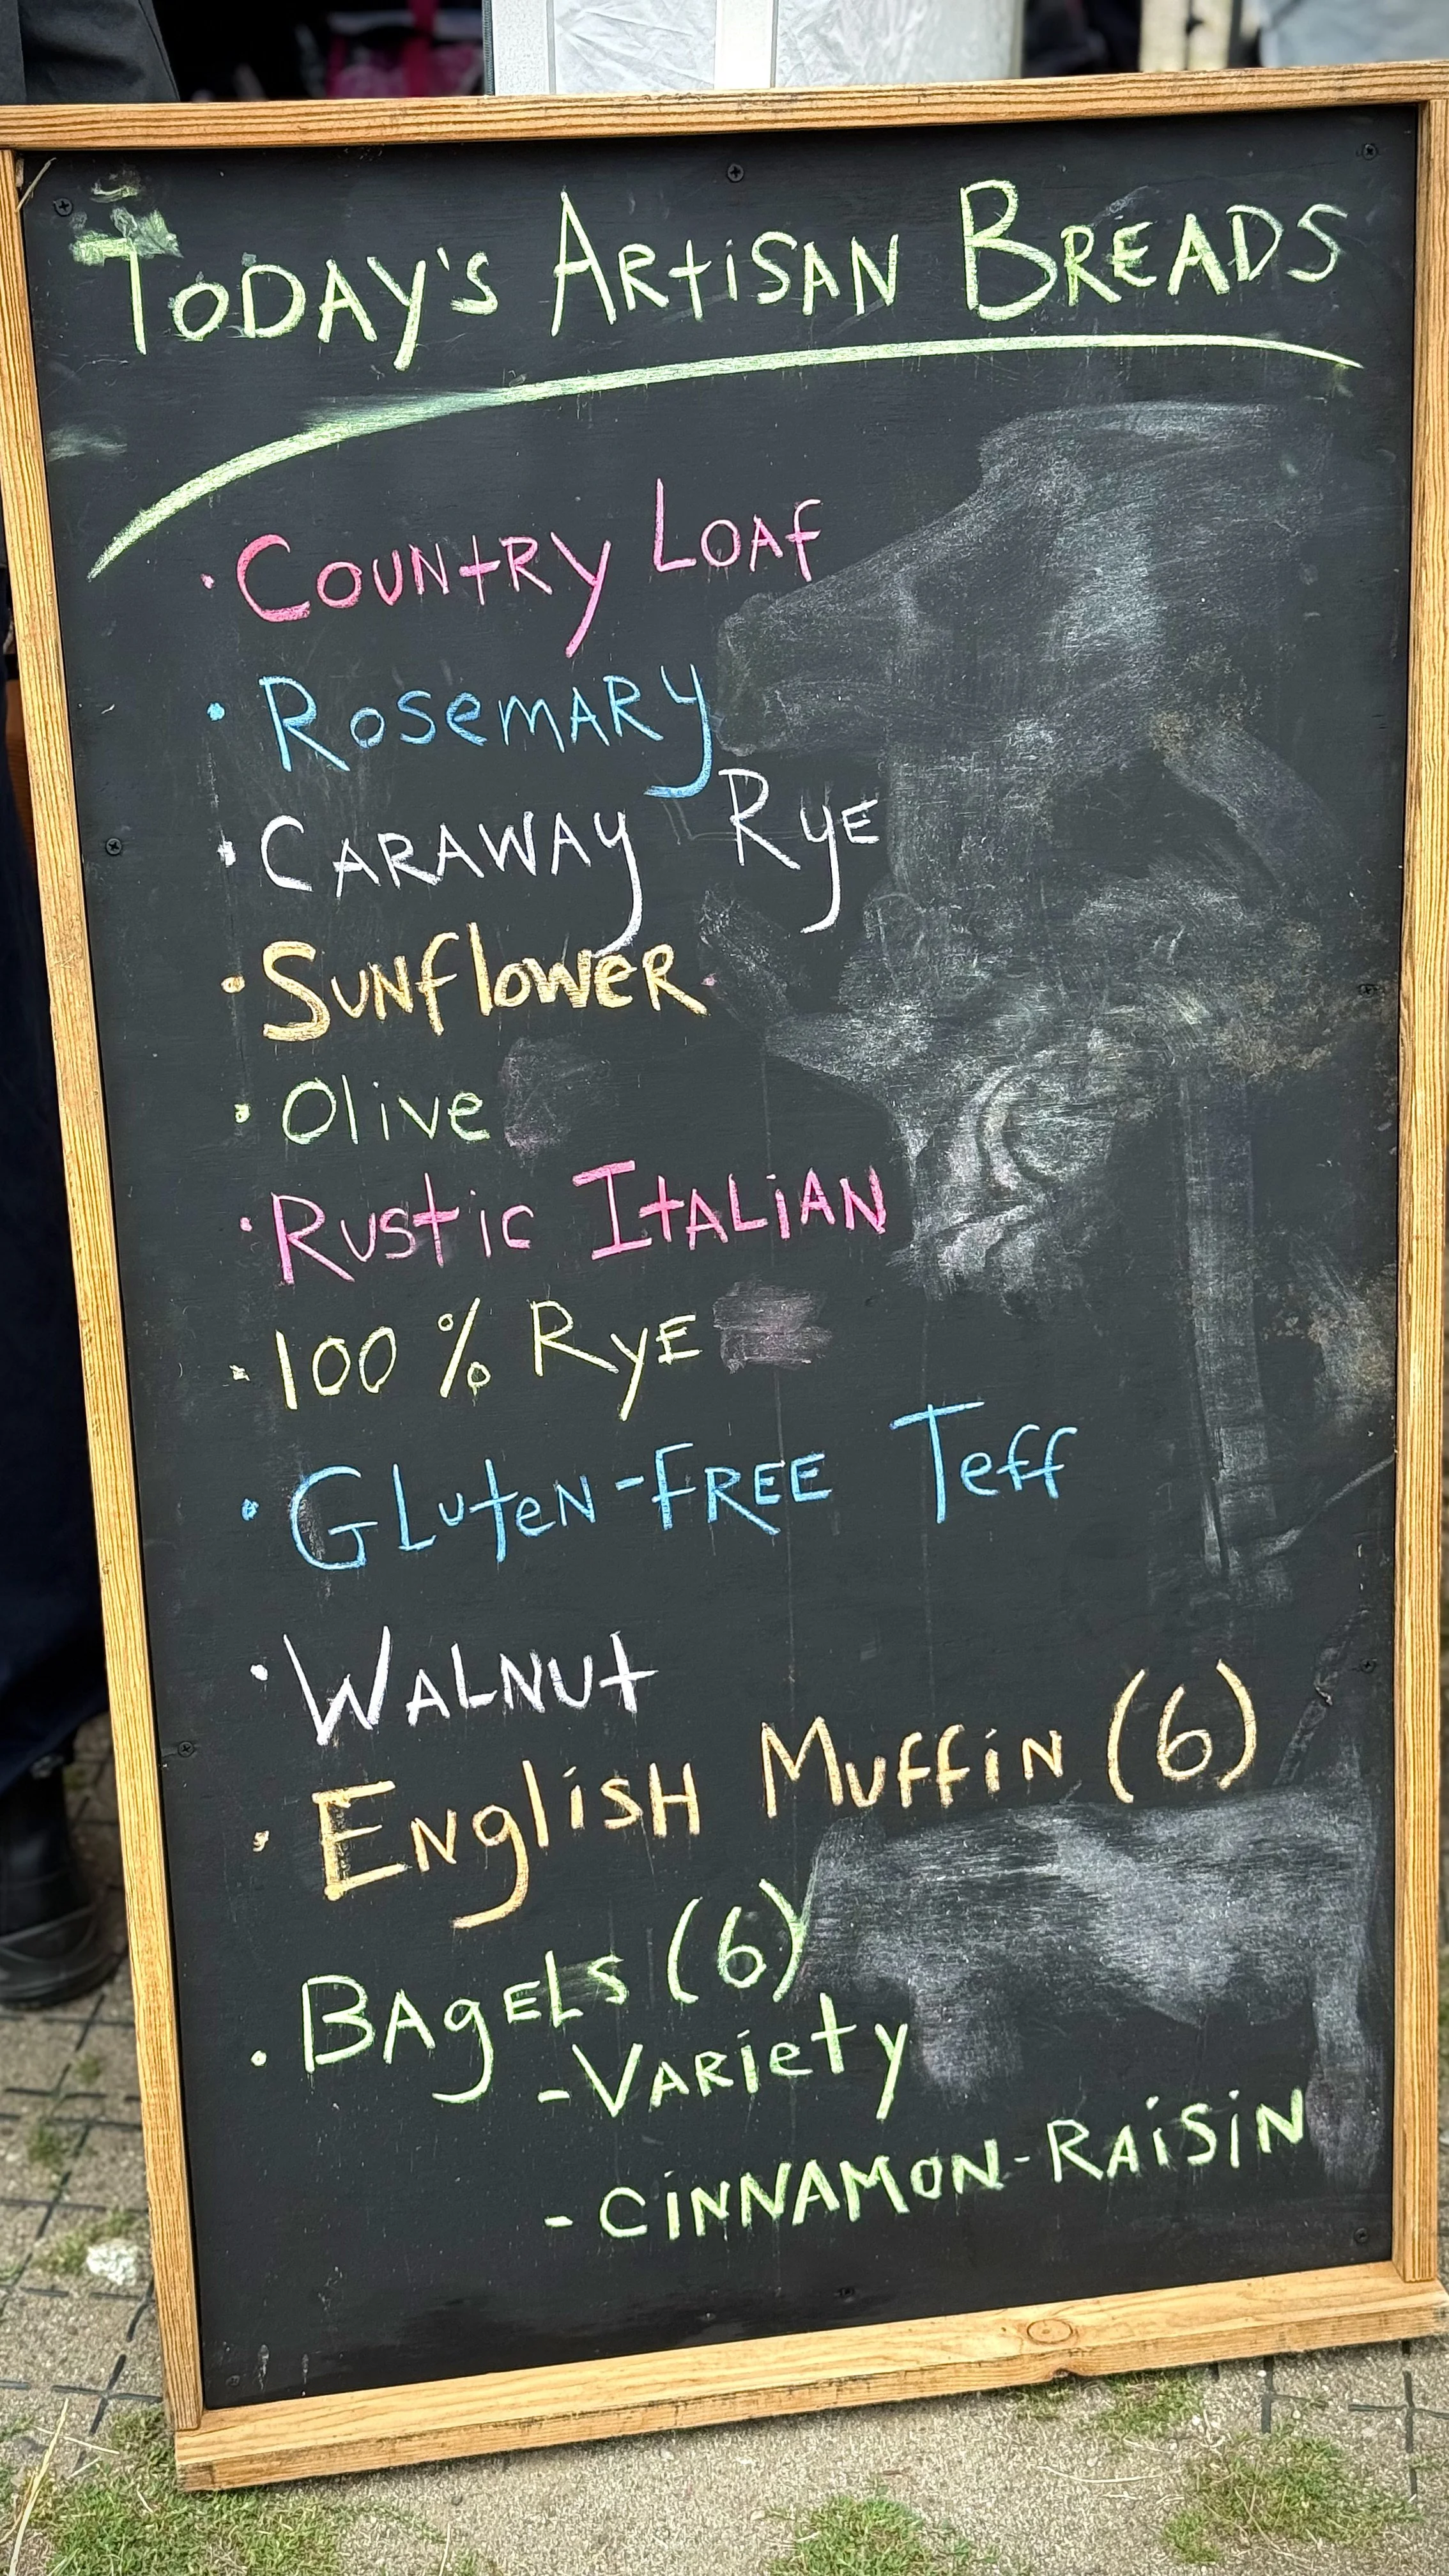 Today's Artisan Breads
· Country Loaf
· Rosemary
· Caraway Rye
· Sunflower
· Olive
· Rustic Italian
· 100% Rye
· Gluten-Free Teff
· Walnut
· English Muffin (6)
· Bagels (6)
- Variety
- Cinnamon-Raisin